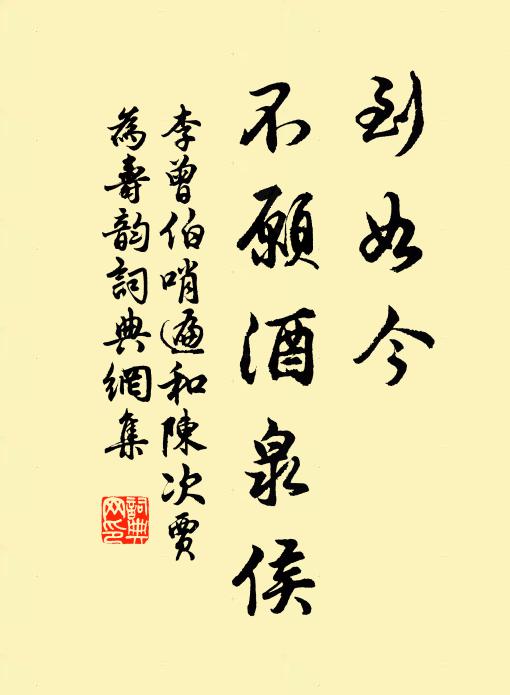 到如今
不願酒泉侯
李曾伯哨遍和陳次賈
為壽韵詞典網集
詞典
网印